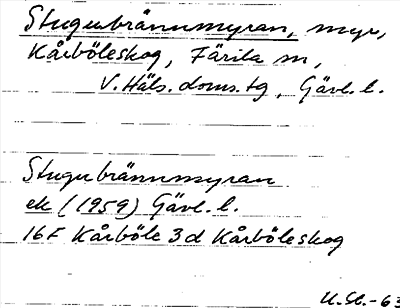 Stugubrännmyran, myr,
Kårböleskog, Färila sn,
V. Häls. doms. tg, Gävl. l.
Stugubrännmyran
ek (1959) Gävl. l.
16F Kårböle 3d Kårböleskog
U.Sl.-63